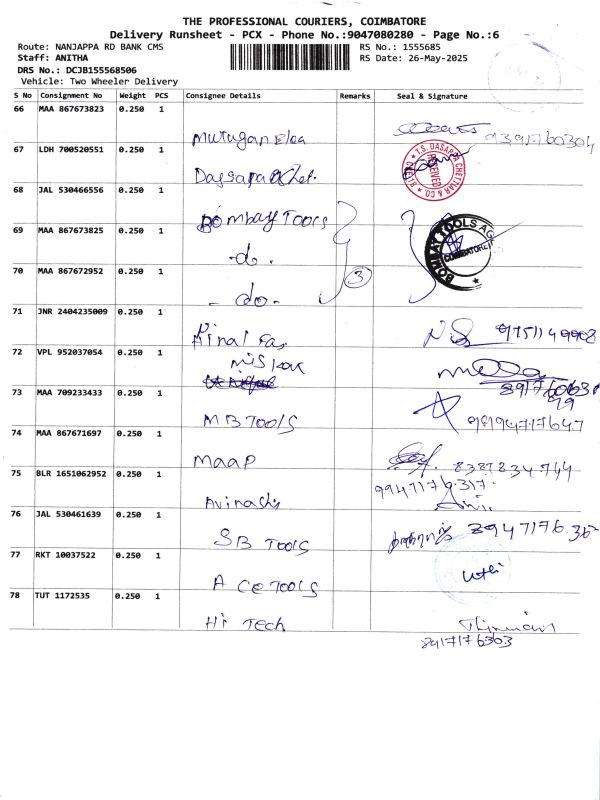 THE PROFESSIONAL COURIERS, COIMBATORE
Delivery Runsheet - PCX - Phone No.:9047080280 - Page No.:6
Route: NANJAPPA RD BANK CMS
RS No.: 1555685
Staff: ANITHA
RS Date: 26-May-2025
DRS No.: DCJB155568506
Vehicle: Two Wheeler Delivery
S No Consignment No Weight PCS Consignee Details Remarks Seal & Signature
66 MAA 867673823 0.250 1
Murugan Elea 9391760304
67 LDH 700520551 0.250 1
T.S. DASAPPA CHETTIAR & CO. RECEIVED
Dassapa Chet.
68 JAL 530466556 0.250 1
Bombay TOOLS
69 MAA 867673825 0.250 1
BOMBAY TOOLS AG
COIMBATORE
-do-
70 MAA 867672952 0.250 1
3
-do-
71 JNR 2404235009 0.250 1
9751149908
72 VPL 952037054 0.250 1
73 MAA 709233433 0.250 1
MB TOOLS
74 MAA 867671697 0.250 1
MAAP 8387834744
75 BLR 1651062952 0.250 1
9947176317
Avinashi
76 JAL 530461639 0.250 1
SB TOOLS
77 RKT 10037522 0.250 1
ACE TOOLS
78 TUT 1172535 0.250 1
Hi Tech
8917176303